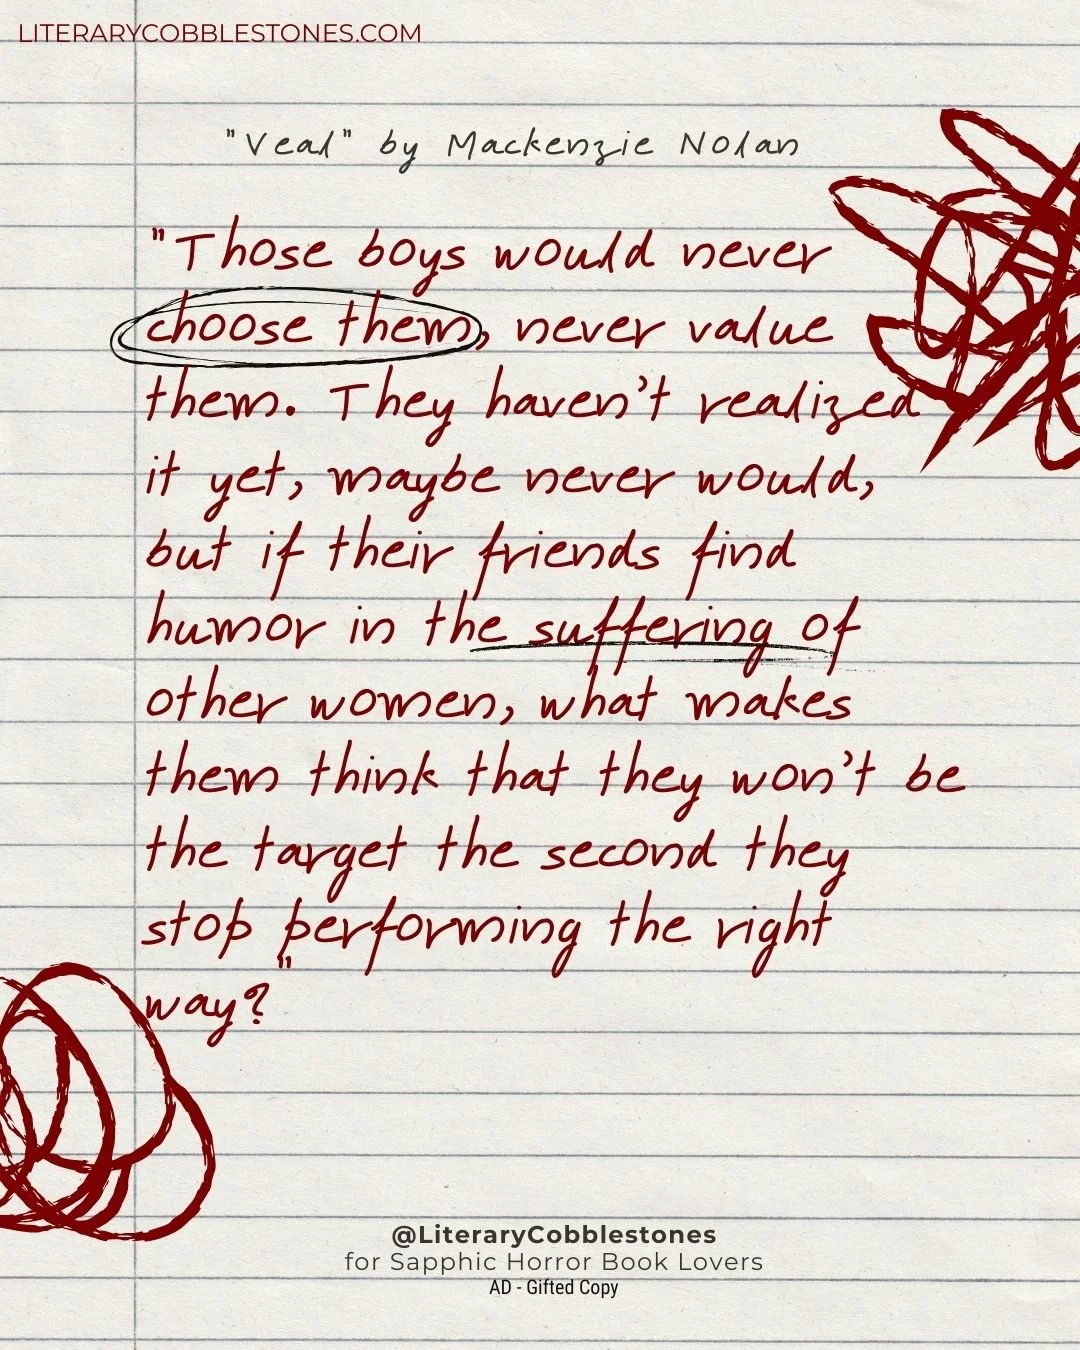 LITERARYCOBBLESTONES.COM
"Veal" by Mackenzie Nolan
"Those boys would never
choose them, never value
them. They haven't realized
it yet, maybe never would,
but if their friends find
humor in the suffering of
other women, what makes
them think that they won't be
the target the second they
stop performing the right
way?"
@LiteraryCobblestones
for Sapphic Horror Book Lovers
AD - Gifted Copy